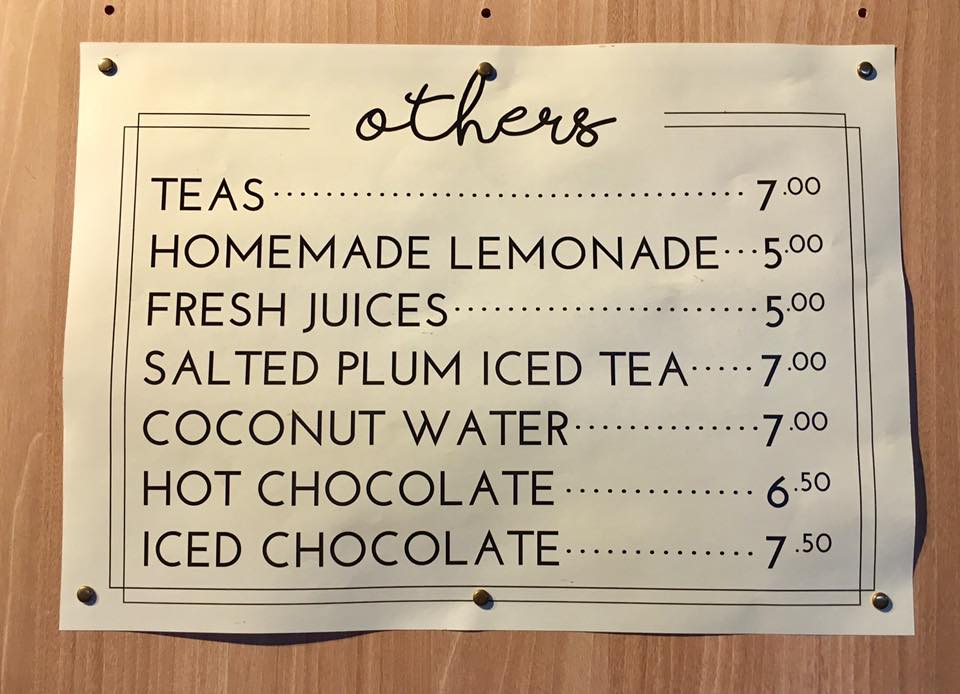 others
TEAS 7.00
HOMEMADE LEMONADE 5.00
FRESH JUICES 5.00
SALTED PLUM ICED TEA 7.00
COCONUT WATER 7.00
HOT CHOCOLATE 6.50
ICED CHOCOLATE 7.50